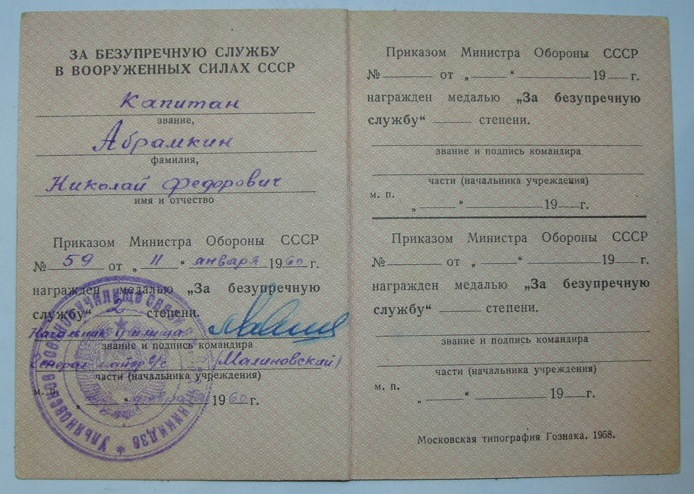 ЗА БЕЗУПРЕЧНУЮ СЛУЖБУ
В ВООРУЖЕННЫХ СИЛАХ СССР
Капитан
звание,
Абрамкин
фамилия,
Николай Федорович
имя и отчество
Приказом Министра Обороны СССР
№ 59 от „ 11 “ января 1960 г.
награжден медалью „За безупречную
службу“ 2 степени.
Начальник училища
звание и подпись командира
Генерал майор т/с Малиновский)
части (начальника учреждения)
м. п. „ “ февраля 1960 г.
Приказом Министра Обороны СССР
№ от „ “ 19 г.
награжден медалью „За безупречную
службу“ степени.
звание и подпись командира
части (начальника учреждения)
м. п.
„ “ 19 г.
Приказом Министра Обороны СССР
№ от „ “ 19 г.
награжден медалью „За безупречную
службу“ степени.
звание и подпись командира
части (начальника учреждения)
м. п.
„ “ 19 г.
Московская типография Гознака. 1958.